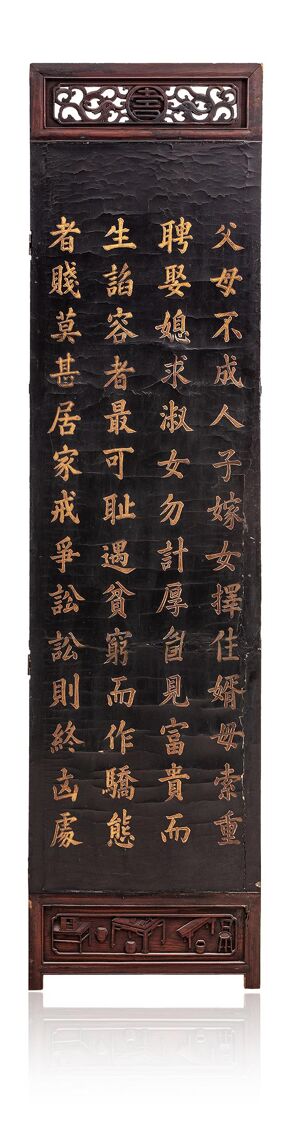 父母不成人子嫁女擇佳婿毋索重
聘娶媳求淑女勿計厚奩見富貴而
生諂容者最可耻遇貧窮而作驕態
者賤莫甚居家戒爭訟訟則終凶處